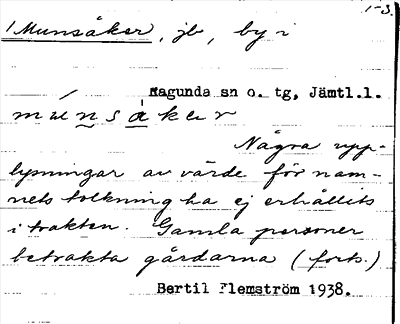 1-3.
1 Munsåker, jb, by i
Ragunda sn o. tg, Jämtl.l.
múnsàker
Några upp-
lysningar av värde för nam-
nets tolkning ha ej erhållits
i trakten. Gamla personer
betrakta gårdarna (forts.)
Bertil Flemström 1938.